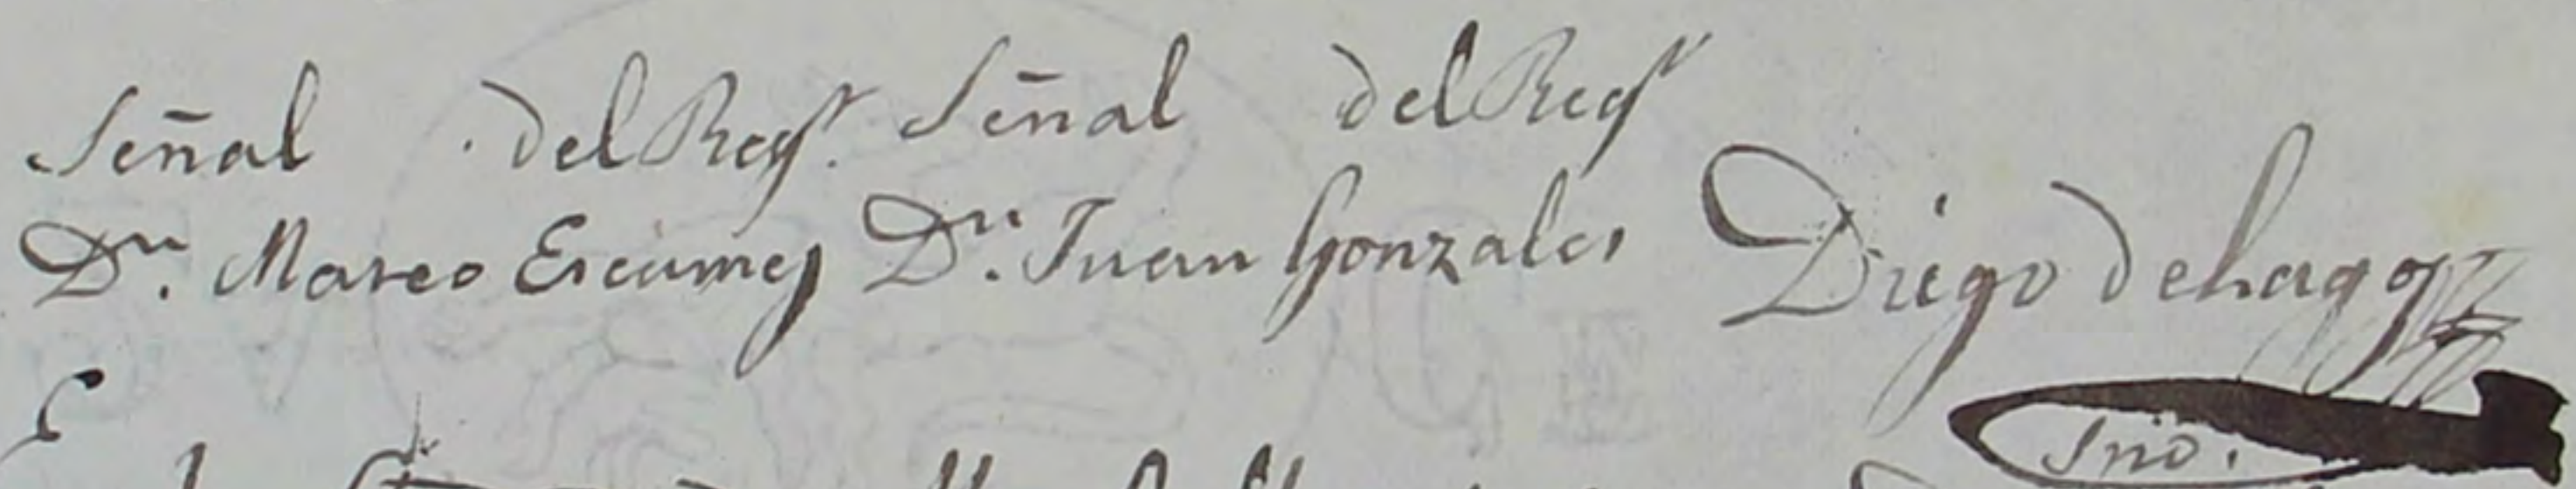 Señal del Regr. Señal del Regr
Dn. Mateo Escamez Dn. Juan Gonzales Diego Delago
Srio.